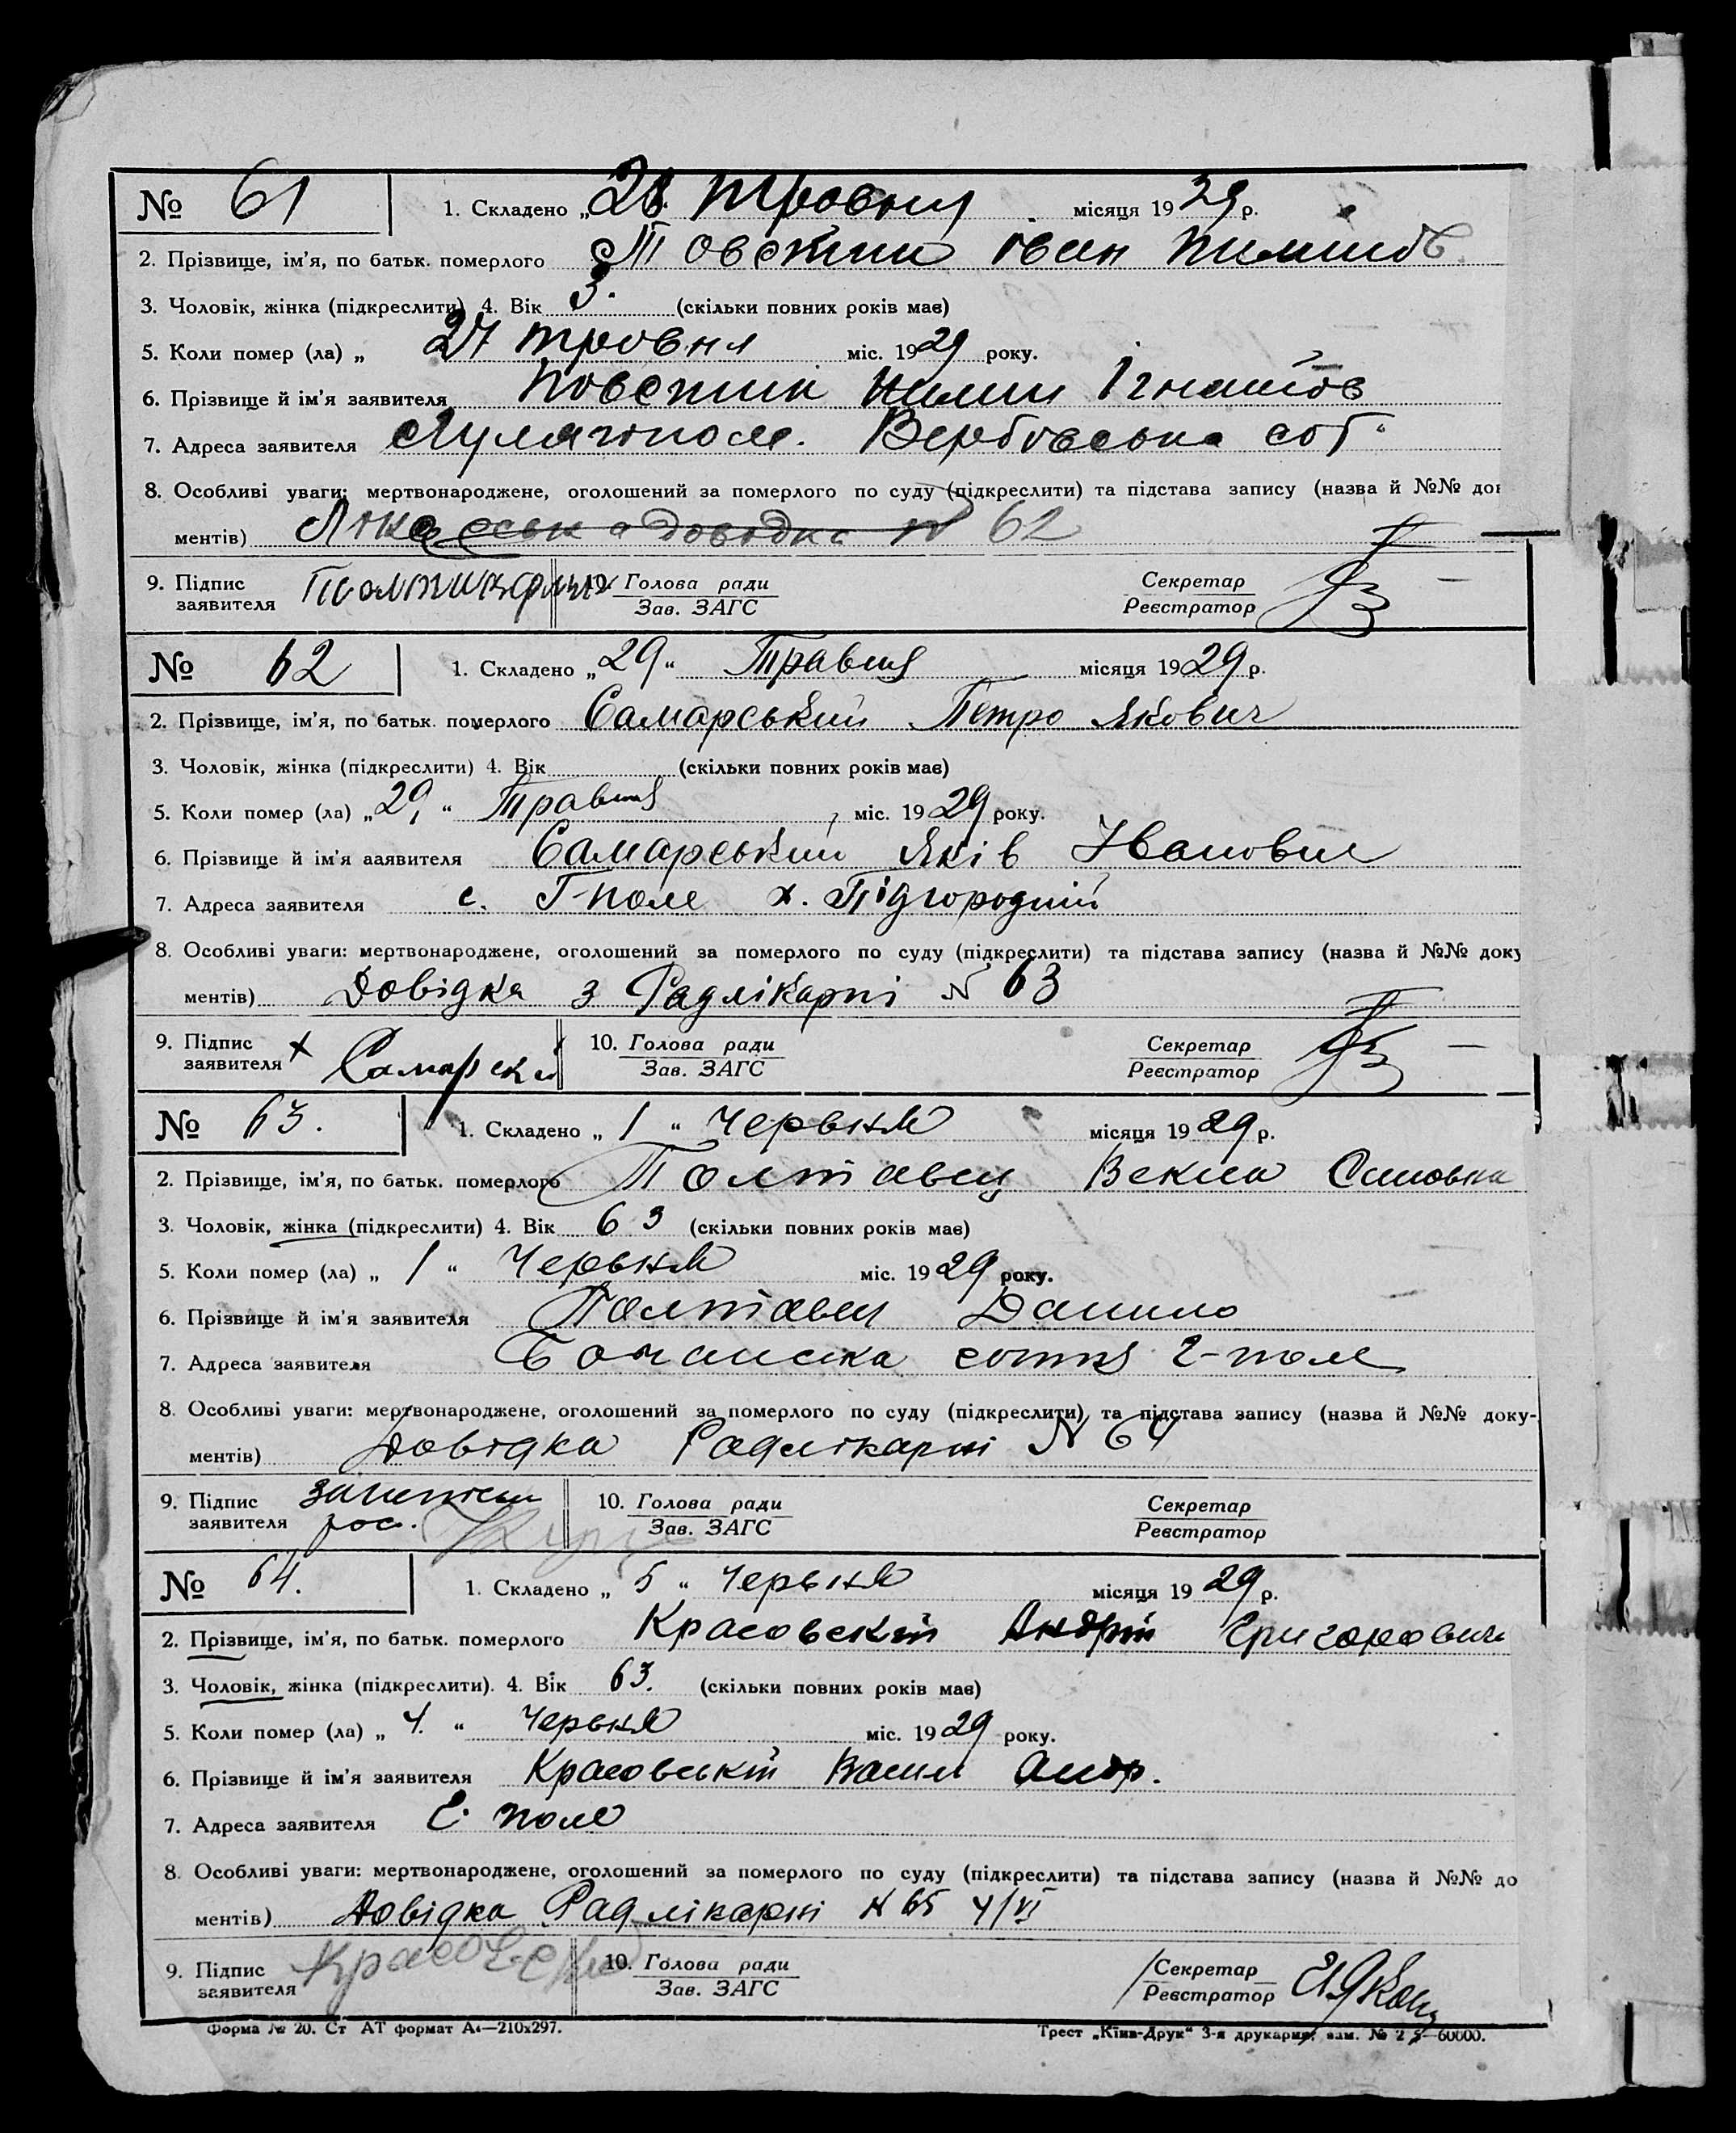 № 61 1. Складено „28 Тровня місяця 1929 р.
2. Прізвище, ім'я, по батьк. померлого іван
3. Чоловік, жінка (підкреслити) 4. Вік 3. (скільки повних років має)
5. Коли помер (ла) „ 27 тровня міс. 1929 року.
6. Прізвище й ім'я заявителя
7. Адреса заявителя Вербовська сот
8. Особливі уваги: мертвонароджене, оголошений за померлого по суду (підкреслити) та підстава запису (назва й №№ док
ментів) довідка № 62
9. Підпис заявителя 10. Голова ради Секретар
Зав. ЗАГС Реєстратор
№ 62 1. Складено „29“ Травня місяця 1929 р.
2. Прізвище, ім'я, по батьк. померлого Самарський Петро Якович
3. Чоловік, жінка (підкреслити) 4. Вік (скільки повних років має)
5. Коли помер (ла) „29“ Травня міс. 1929 року.
6. Прізвище й ім'я заявителя Самарський Яків Іванович
7. Адреса заявителя с. Г-поле х. Підгородній
8. Особливі уваги: мертвонароджене, оголошений за померлого по суду (підкреслити) та підстава запису (назва й №№ доку
ментів) Довідка з Радлікарні № 63
9. Підпис заявителя х Самарский 10. Голова ради Секретар
Зав. ЗАГС Реєстратор
№ 63. 1. Складено „ 1 “ Червня місяця 1929 р.
2. Прізвище, ім'я, по батьк. померлого Полтавец
3. Чоловік, жінка (підкреслити) 4. Вік 63 (скільки повних років має)
5. Коли помер (ла) „ 1 “ Червня міс. 1929 року.
6. Прізвище й ім'я заявителя Полтавец Данило
7. Адреса заявителя сотня Г-поле
8. Особливі уваги: мертвонароджене, оголошений за померлого по суду (підкреслити) та підстава запису (назва й №№ доку-
ментів) Довідка Радлікарні № 64
9. Підпис заявителя 10. Голова ради Секретар
Зав. ЗАГС Реєстратор
№ 64. 1. Складено „ 5 “ Червня місяця 1929 р.
2. Прізвище, ім'я, по батьк. померлого Красовскій Андрій Григорович
3. Чоловік, жінка (підкреслити). 4. Вік 63. (скільки повних років має)
5. Коли помер (ла) „ 4. “ Червня міс. 1929 року.
6. Прізвище й ім'я заявителя Красовській Васил Андр.
7. Адреса заявителя Г. поле
8. Особливі уваги: мертвонароджене, оголошений за померлого по суду (підкреслити) та підстава запису (назва й №№ до
ментів) Довідка Радлікарні № 65 4/VI
9. Підпис заявителя 10. Голова ради Секретар
Зав. ЗАГС Реєстратор
Форма № 20. Ст АТ формат А4—210x297. Трест „Київ-Друк“ 3-я друкарня, зам. № 60000.